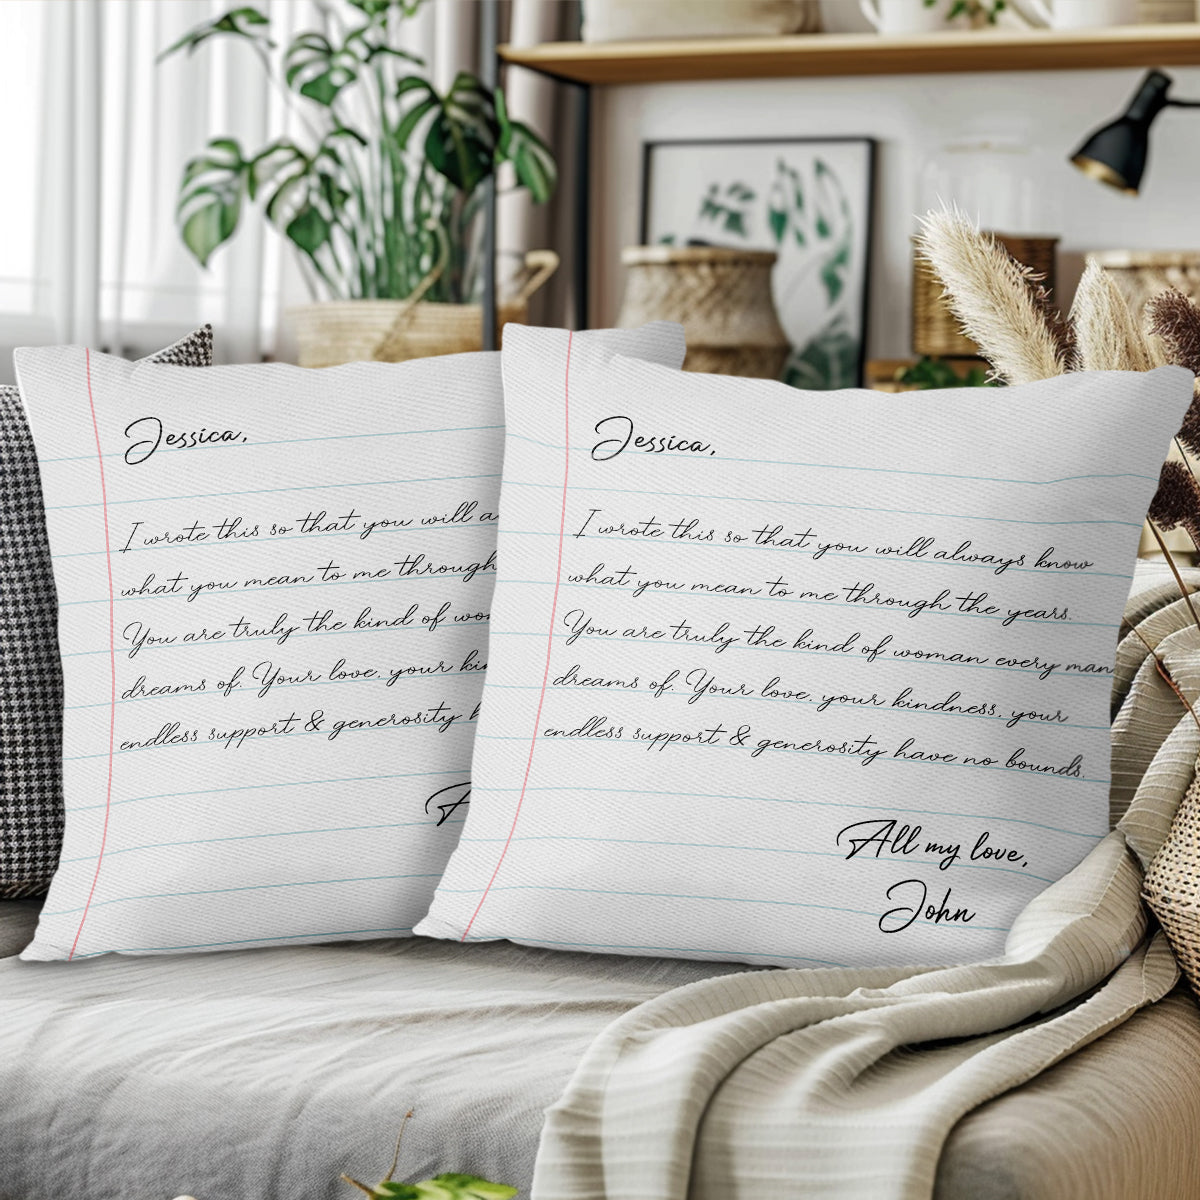 Jessica,
I wrote this so that you will a
what you mean to me through
You are truly the kind of wom
dreams of. Your love, your kin
endless support & generosity h
A
Jessica,
I wrote this so that you will always know
what you mean to me through the years.
You are truly the kind of woman every man
dreams of. Your love, your kindness, your
endless support & generosity have no bounds.
All my love,
John